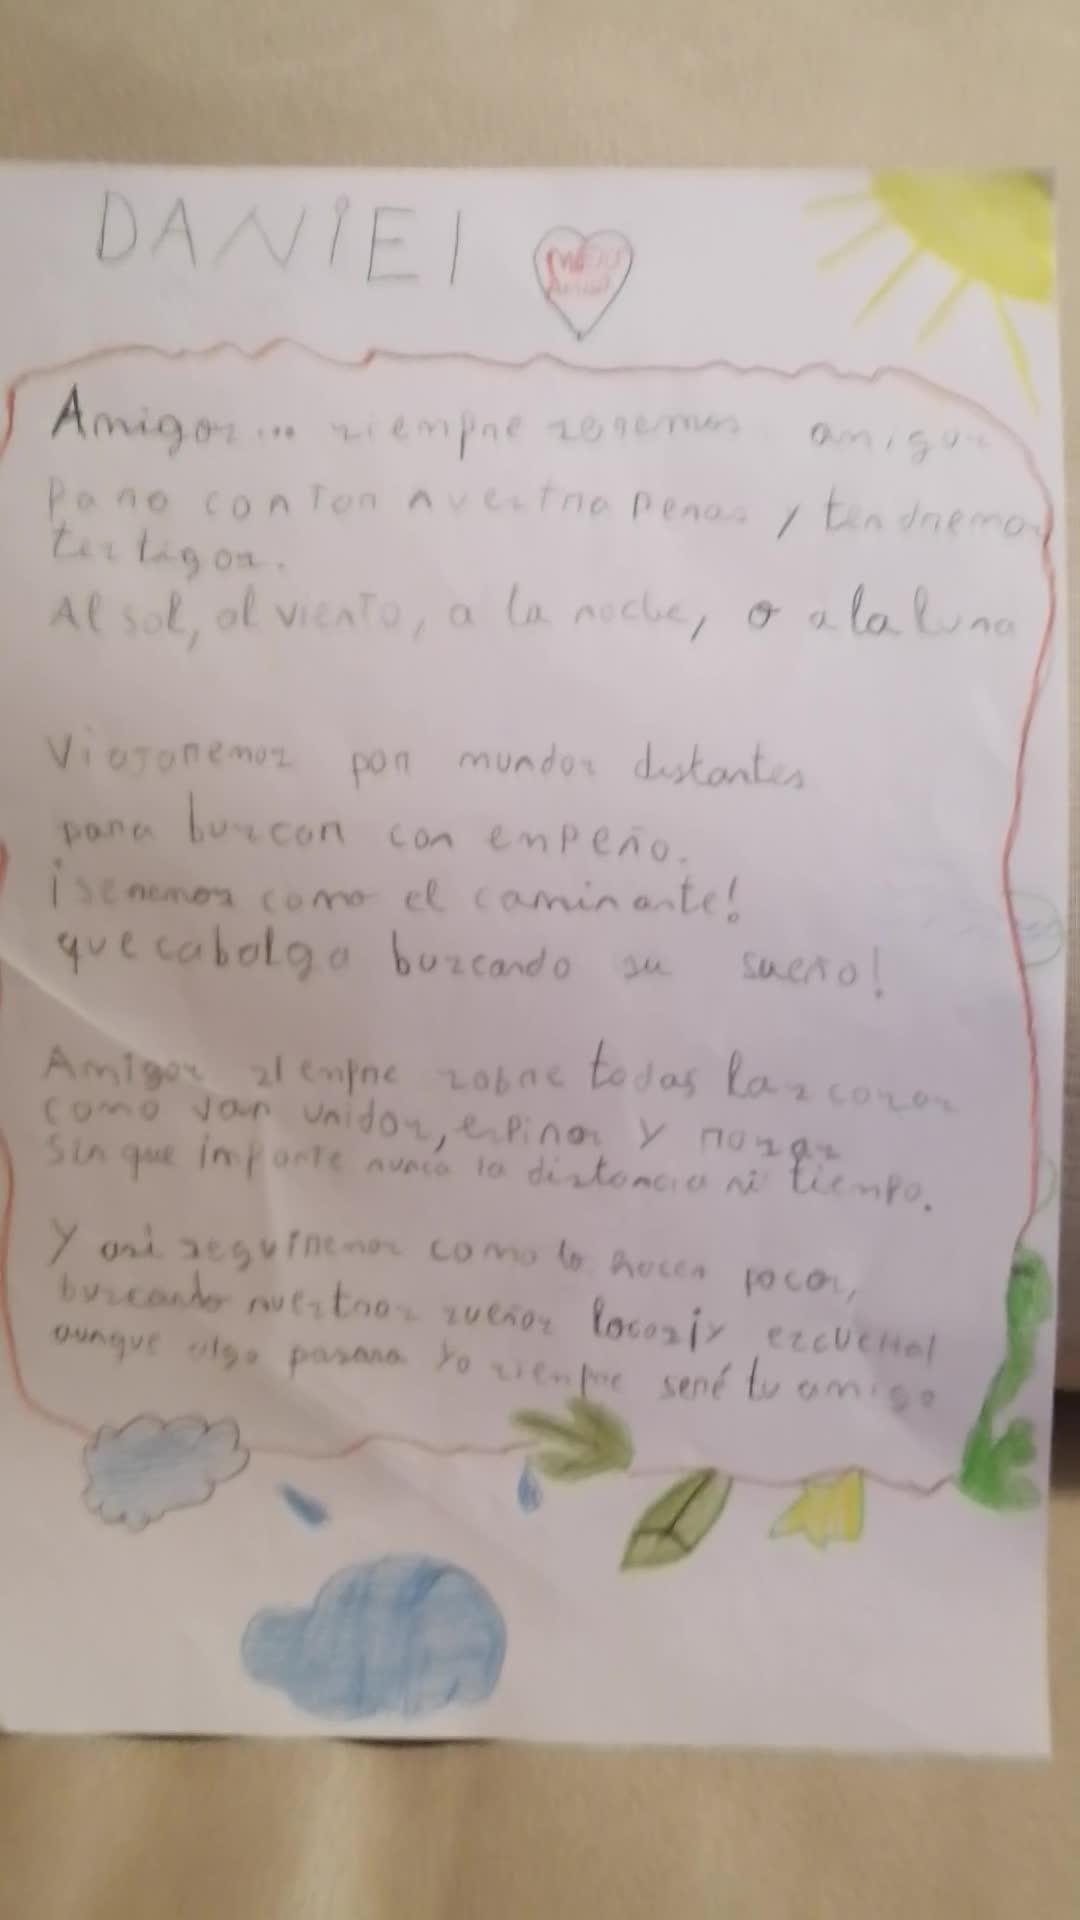 DANIEl
Amigos... siempre seremos amigos
Para contar nuestra penas y tendremos
testigos.
Al sol, al viento, a la noche, o a la luna
Viajaremos por mundos distantes
para buscar con enpeño.
¡seremos como el caminante!
que cabalga buscando su sueño!
Amigos siempre sobre todas las cosas
como van unidos, espinas y rosas
Sin que importe nunca la distancia ni tiempo.
Y asi seguiremos como lo hacen pocos,
buscando nuestros sueños locos¡y escucha!
aunque algo pasara Yo siempre seré tu amigo